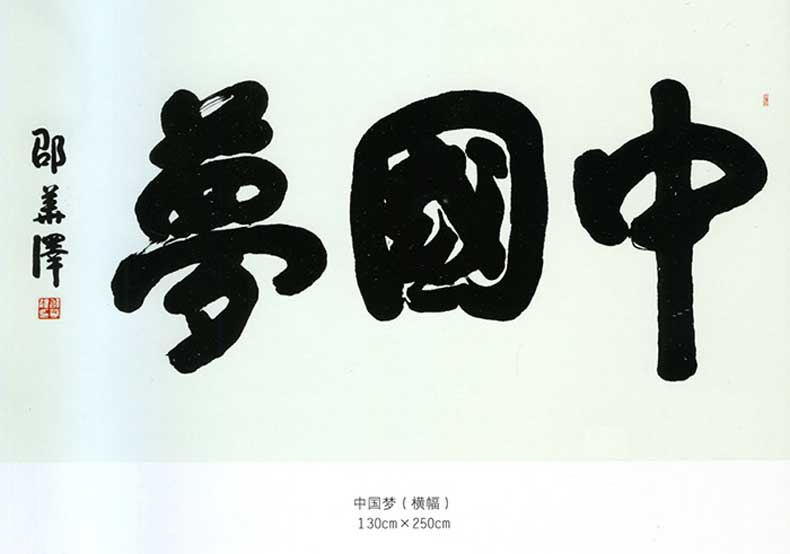 中國夢
邵華澤
中国梦（横幅）
130cm×250cm